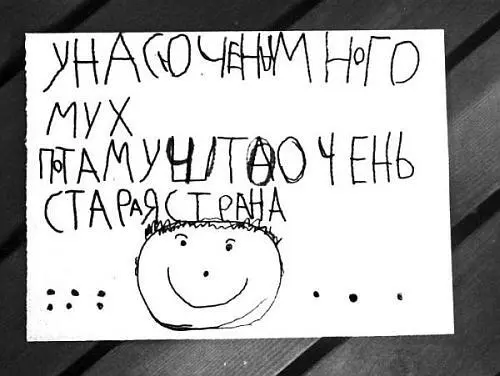 УНАСОЧЕНЫМНОГО
МУХ
ПОТАМУШТАОЧЕНЬ
СТАРАЯСТРАНА